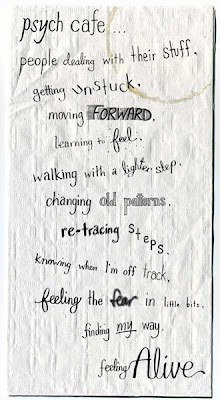 psych cafe ...
people dealing with their stuff.
getting unstuck.
moving FORWARD.
learning to feel.
walking with a lighter step.
changing old patterns.
re-tracing steps.
knowing when I'm off track.
feeling the fear in little bits.
finding my way.
feeling Alive